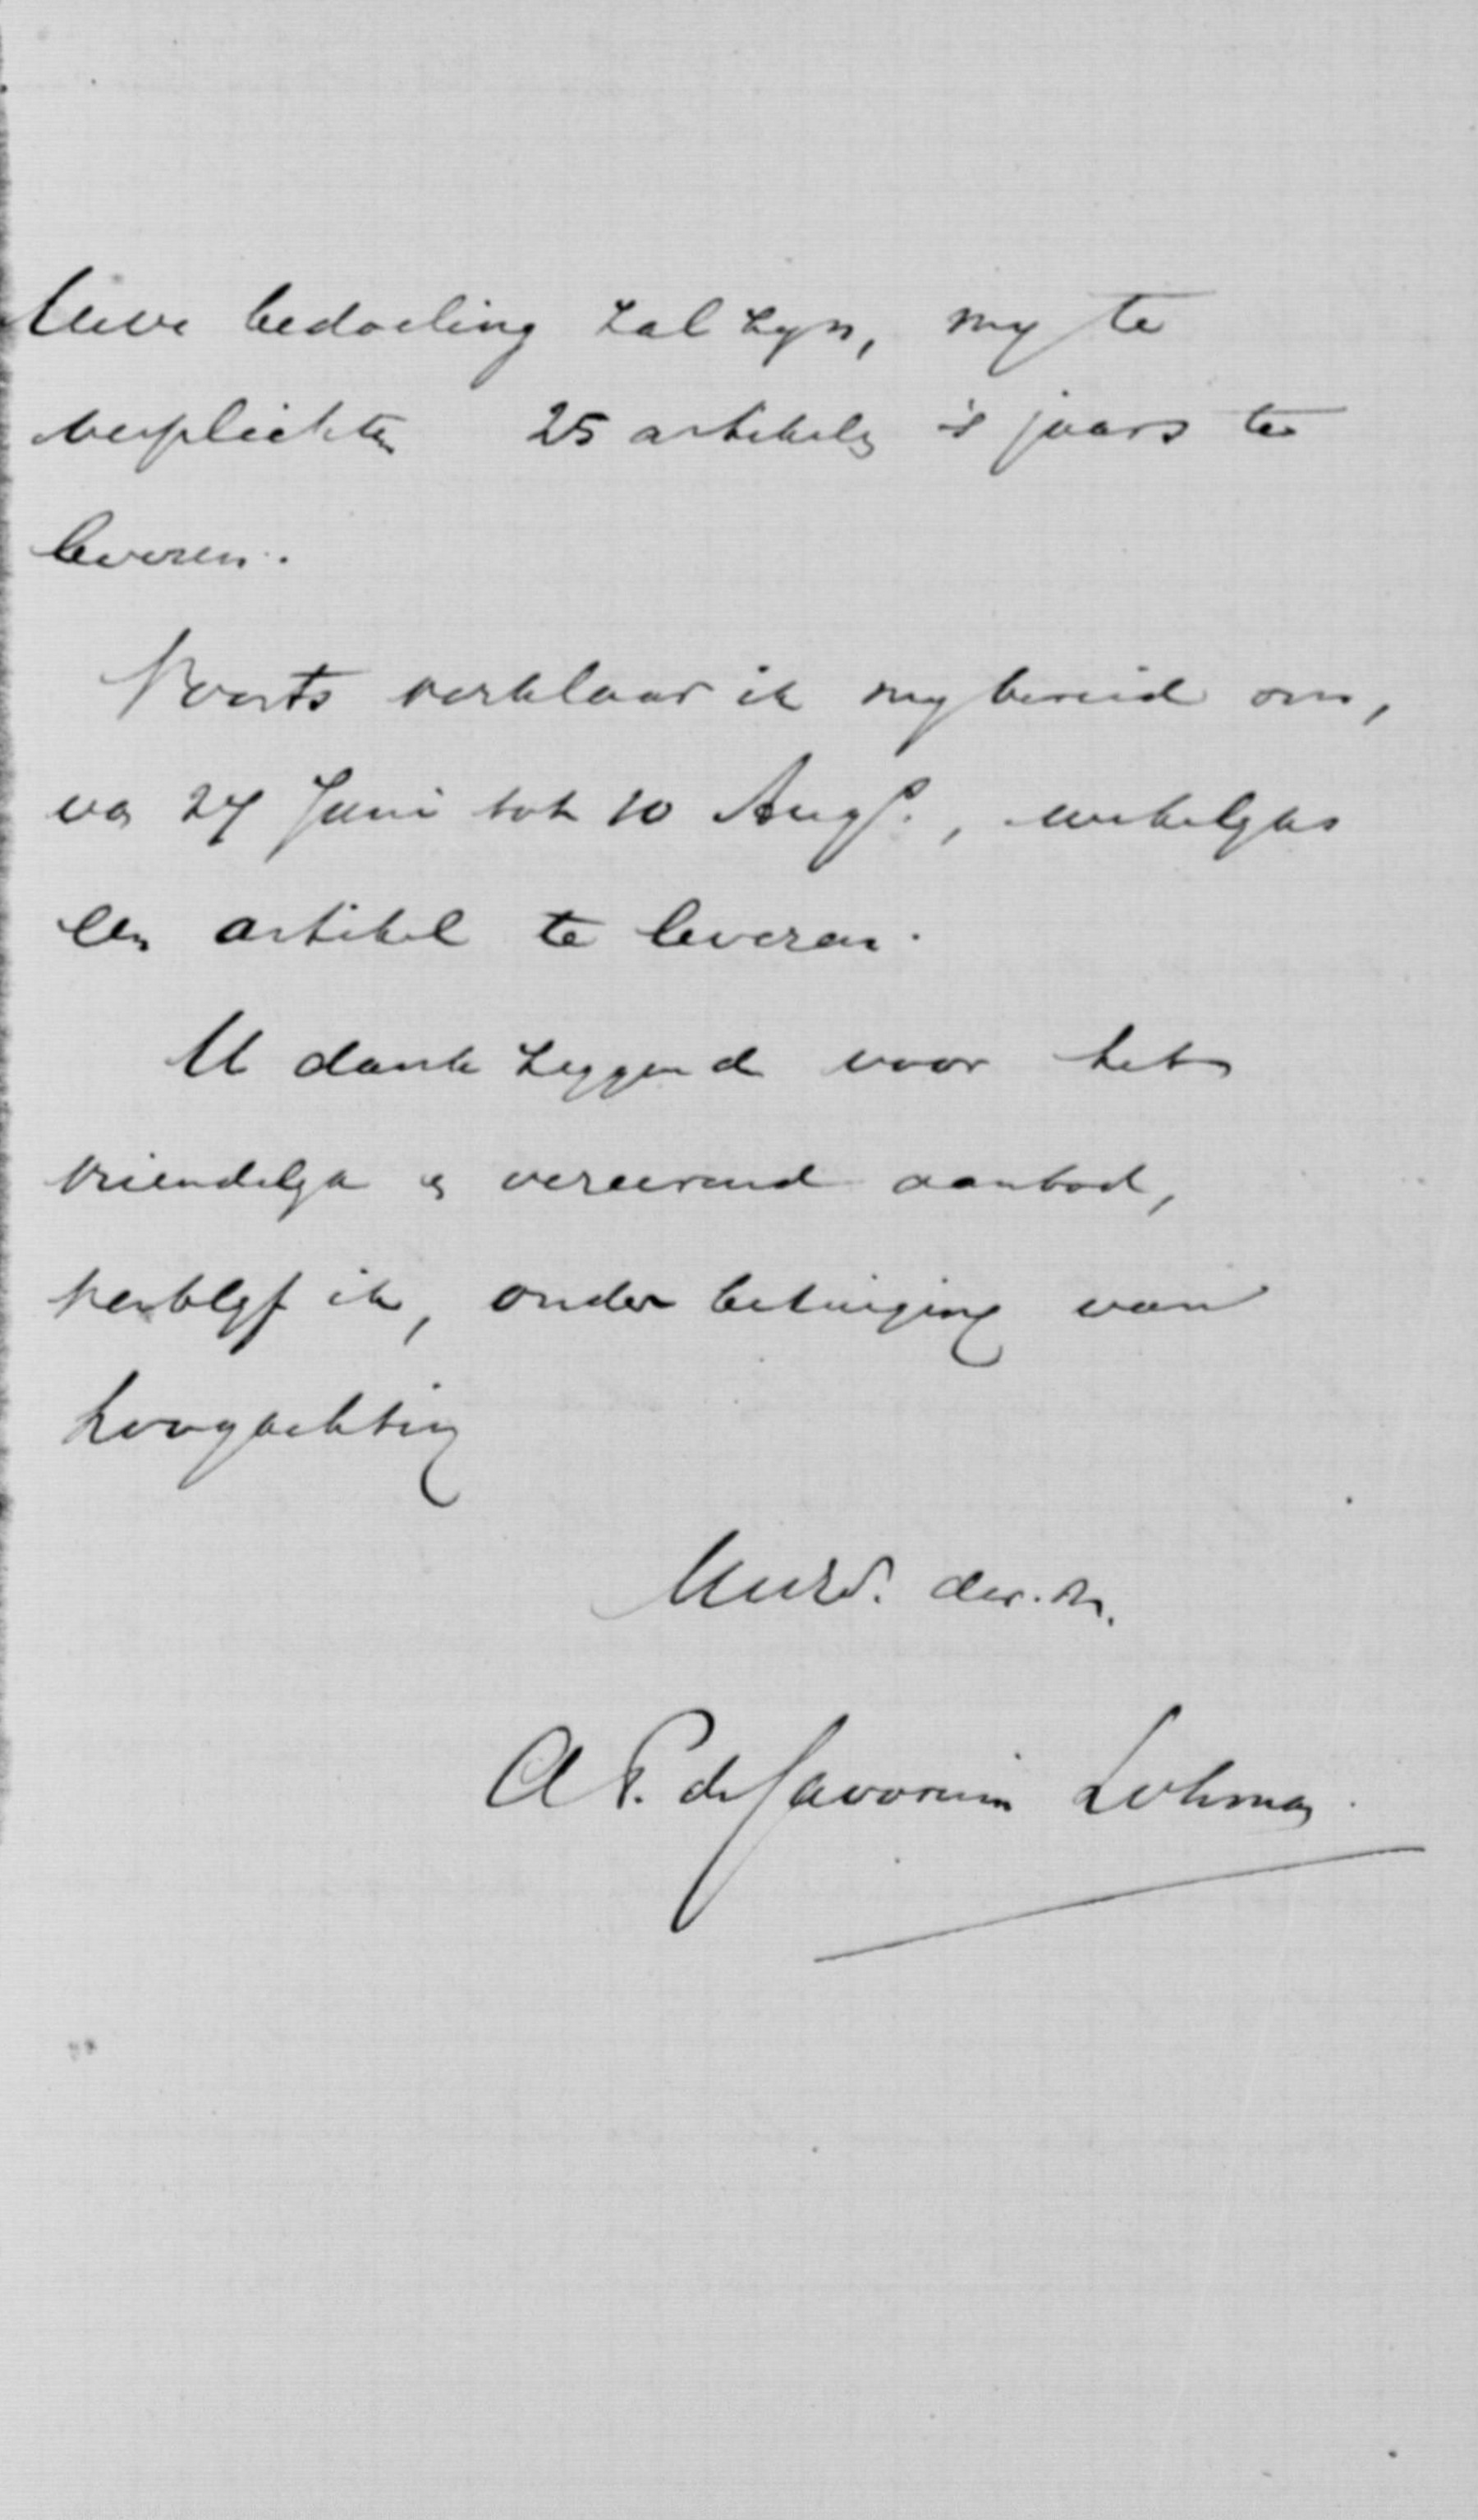 Uwe bedoeling zal zyn, my te
verplichten 25 artikelen 's jaars te
leveren.
Voorts verklaar ik my bereid om,
van 24 Juni tot 10 Augs., wekelyks
een artikel te leveren.
U dank zeggend voor het
vriendelyk en vereerend aanbod,
verblyf ik, onder betuiging van
hoogachting
UwEd. dw. dr.
A F. de Savornin Lohman.